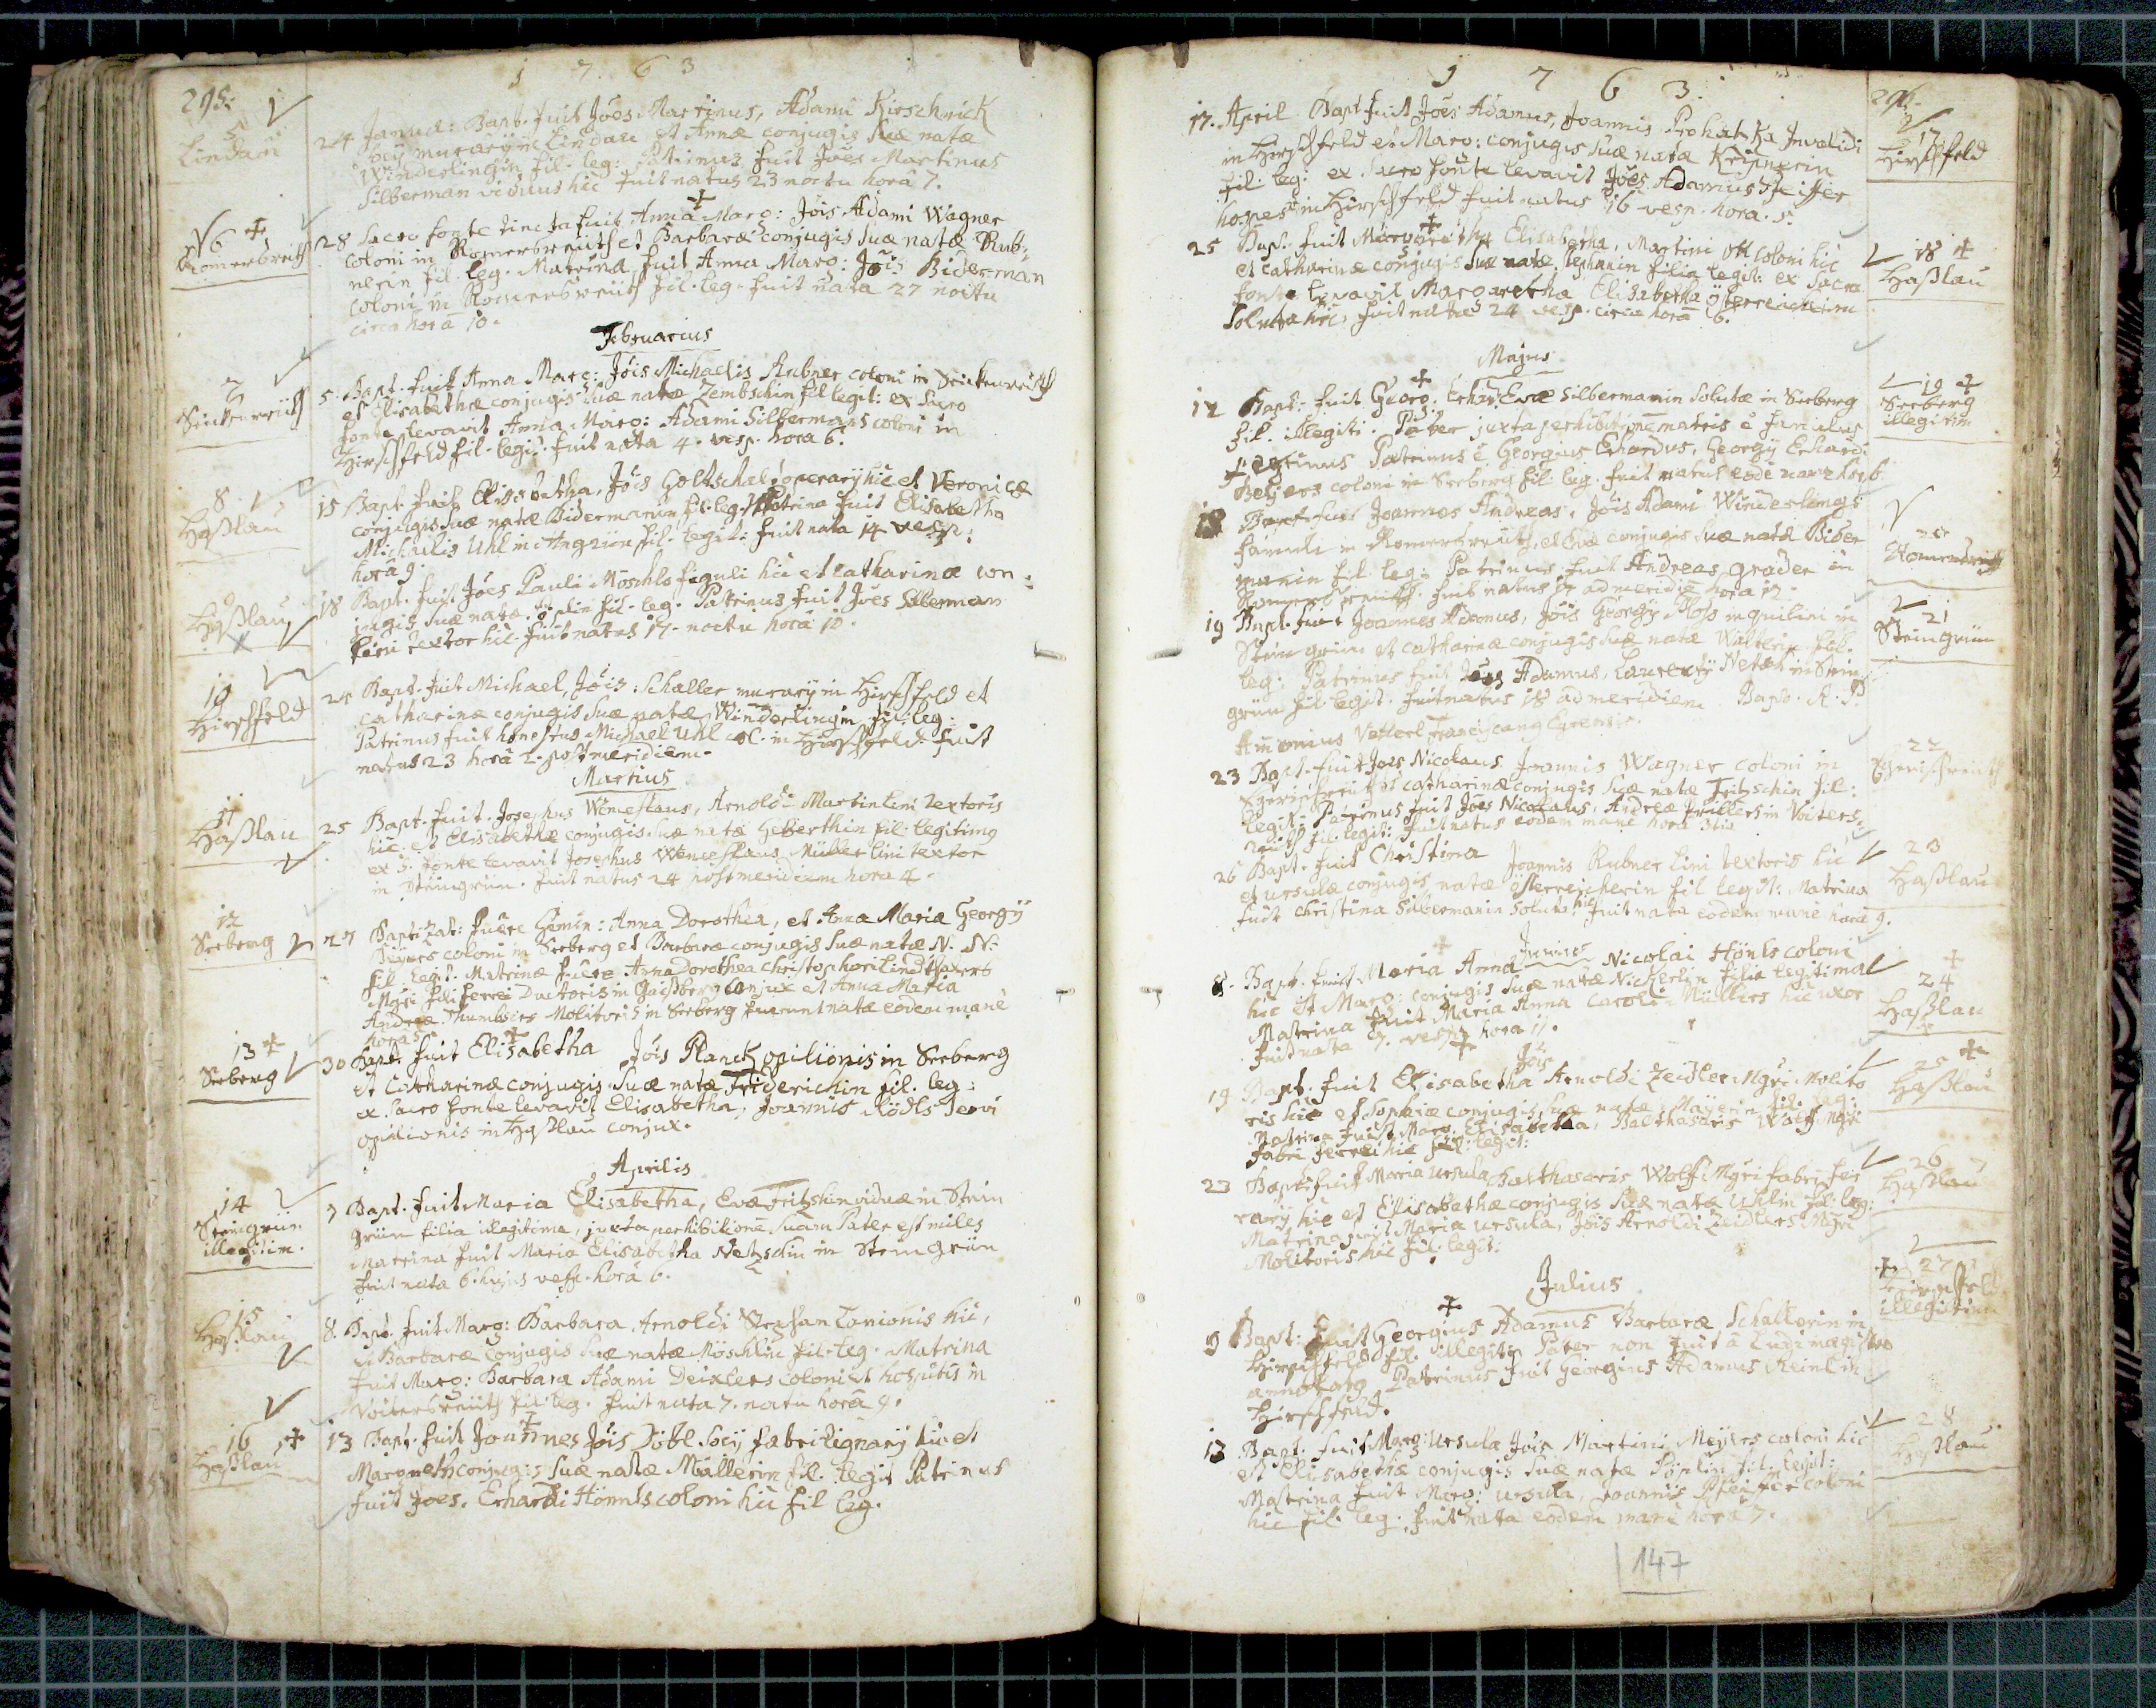 295.
1 7 6 3
5
Lindau
24 Januar: Bapt. fuit Joes Martinus, Adami Kirschnick
socij murarij in Lindau et Annæ conjugis suæ natæ
Winderlingin fil. leg: Patrinus fuit Joes Martinus
Silberman viduus hic fuit natus 23 noctu hora 7.
6
Romerbreith
28 Sacro fonte tincta fuit Anna Marg: Jois Adami Wagner
coloni in Romersreuth et Barbaræ conjugis suæ natæ Rub-
nerin fil. leg. Matrina fuit Anna Marg: Jois Biderman
coloni in Romersreuth fil. leg. fuit nata 27 noctu
circa horã 10.
Februarius
7
5. Bapt. fuit Anna Marg: Jois Michaelis Rubner coloni in
et Elisabethæ conjugis suæ natæ Zembschin fil legit: ex sacro
fonte levavit Anna Marg: Adami Silbermans coloni in
Hirschfeld fil. legit. fuit nata 4. vesp. hora 6.
8
Haßlau
15 Bapt. fuit Elisabetha, Jois Goltschal operarij hic et Veronicæ
conjugis suæ natæ Bidermanin fil. leg. Matrina fuit Elisabetha
Michaelis Uhl in fil. legit: fuit nata 14 vesp:
hora 9.
9
Haßlau
18 Bapt. fuit Joes Pauli Möschls figuli hic et Catharinæ con-
jugis suæ natæ fil. leg. Patrinus fuit Joes Silberman
lini textor hic. fuit natus 17. noctu hora 10.
10
Hirschfeld
25 Bapt. fuit Michael, Jois: Schaller murarij in Hirschfeld et
catharinæ conjugis suæ natæ Winderlingin fil. leg:
Patrinus fuit honestus Michael Uhl col. in Hirschfeld. fuit
natus 23 hora 2. post meridiem.
Martius
11
Haßlau
25 Bapt. fuit. Josephus Wenceslaus, Arnoldi Martin lini textoris
hic et Elisabethæ conjugis suæ natæ Geberthin fil. legitimg
ex S: fonte levavit Josephus Wenceslaus Müller lini textor
in Steingrün. fuit natus 24 post meridiem hora 4.
12
Seeberg
27 Bapti Zat: fuere Gemin: Anna Dorothea, et Anna Maria Georgij
Beijers coloni in Seeberg et Barbaræ conjugis suæ natæ N. N.
fil. legit. Matrinæ fuere Anna Dorothea Christophori
Mgri fili ferrei Ductoris in Gaißberg conjux et Anna Maria
Andreæ Molitoris in Seeberg fuerunt natæ eodem mane
hora 5
13
Seeberg
30 Bapt. fuit Elisabetha Jois Planck opilionis in Seeberg
et Catharinæ conjugis suæ natæ Friderichin fil. leg:
ex sacro fonte levavit Elisabetha, Joannis Rödls servi
opilionis in Haßlau conjux.
Aprilis
14
Steingrün
illegitim.
7 Bapt. fuit Maria Elisabetha, Evæ Fritzshin viduæ in Stein
grün filia illegitima, juxta perhibitionē suam Pater est miles
Matrina fuit Maria Elisabetha Netzschin in Steingrün
fuit nata 6. hujus vesp. hora 6.
15
Haßlau
8. Bapt. fuit Marg: Barbara Arnoldi Strasan Lanionis hic,
et Barbaræ conjugis suæ natæ Möschlin fil. leg. Matrina
fuit Marg: Barbara Adami Deixlers coloni et hospitis in
Voitersreuth fil. leg. fuit nata 7. noctu horâ 9.
16
Haßlau
13 Bapt. fuit Joannes Jois Döbl socij fabri lignarij hic et
Margareth conjugis suæ natæ Müllerin fil. legit Patrinus
fuit Joes. Erhardi Hönnls coloni hic fil leg.
1 7 6 3.
296.
17
Hirschfeld
17. April Bapt fuit Joes Adamus, Joannis Prohatzka Invalidi
in Hirschfeld et Marg: conjugis suæ natæ Kripnerin
fil. leg: ex sacro fonte levavit Joes Adamus Pfeiffer
hospes in Hirschfeld fuit natus 16 vesp. hora. 5.
18
Haßlau
25 Bapt. fuit Margaretha Elisabetha, Martini Ott coloni hic
et catharinæ conjugis suæ natæ filia legit: ex sacro
fonte levavit Margaretha Elisabetha Österreicherin
soluta hic. fuit nata 24 vesp. circa horã 6.
Majus
19
Seeberg
illegitim
12 Bapt: fuit Georg: Erhar: Evæ Silbermanin solutæ in Seeberg
fil. illegiti. Pater juxta perhibitionē matris ē famulus
Patrinus ē Georgius Erhardus, Georgij Erhardi
Beijers coloni in Seeberg fil. leg. fuit natus eodē
20
18 Bapt. fuit Joannes Andreas, Jois Adami Winderlings
famuli in Romersreuth, et Evæ conjugis suæ natæ Bider
manin fil. leg: Patrinus fuit Andreas grader in
Romersreuth. fuit natus 17 ad meridiē hora 12.
21
Steingrün
19 Bapt. fuit Joannes Adamus, Jois Georgij Ploß inquilini in
Steingrün et catharinæ conjugis suæ natæ fil.
leg: Patrinus fuit Joes Adamus, Laurentij Netsch in Stein
grün fil. legit. fuit natus 18 ad meridiem Bapt. A. P.
Antonius Vetterl Franciscang Egrensis.
22
23 Bapt. fuit Joes Nicolaus Joannis Wagner coloni in
et catharinæ conjugis suæ natæ Fritschin fil:
legit: Patrinus fuit Joes Nicolaus, Andreæ in Voiters-
reuth fil. legit: fuit natus eodem mane hora 3tia
23
Haßlau
26 Bapt. fuit Christina Joannis Rubner lini textoris hic
et ursulæ conjugis natæ österreicherin fil legit: Matrina
fuit Christina Silbermanin soluta hic fuit nata eodem mane horâ 9.
Junius
24
Haßlau
8. Bapt. fuit Maria Anna Nicolai Hönls coloni
hic et Marg: conjugis suæ natæ Nickerlin filia legitima
Matrina fuit Maria Anna Caroli Müllers hic uxor
fuit nata 7. vesp. hora 11.
25
Haßlau
19 Bapt. fuit Elisabetha Jois Arnoldi Zeidler Mgri Molito
ris hic et Sophiæ conjugis suæ natæ Mayerin fil. leg:
Matrina fuit Marg. Elisabetha, Balthasaris Wolf Mgri
fabri ferrei hic fil. legit:
26
Haßlau
23 Bapt. fuit Maria Ursula Balthasaris Wolf Mgri fabri fer
rarij hic et Elisabethæ conjugis suæ natæ Uhlin fil. leg:
Matrina fuit Maria Ursula, Jois Arnoldi Zeidlers Mgri
Molitoris hic fil. legit:
Julius
27
Hirschfeld
illegitim
9 Bapt: fuit Georgius Adamus Barbaræ Schallerin in
Hirschfeld fil. illegit: Pater non fuit a Ludimagistro
annotatg Patrinus fuit Georgius Adamus Reinl in
Hirschfeld.
28
Haßlau
13 Bapt. fuit Marg: Ursula Jois Martini Meijers coloni hic
et Elisabethæ conjugis suæ natæ fil. legit:
Matrina fuit Marg: ursula, Joannis Pfeiffer coloni
hic fil. leg. fuit nata eodem mane hora 7.
147